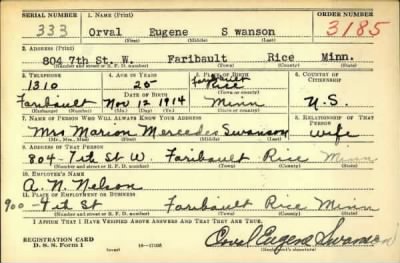 SERIAL NUMBER 1. NAME (Print) ORDER NUMBER
333 Orval Eugene Swanson 3185
(First) (Middle) (Last)
2. ADDRESS (Print)
804 7th St. W. Faribault Rice Minn.
(Number and street or R. F. D. number) (Town) (County) (State)
3. TELEPHONE 4. AGE IN YEARS 5. PLACE OF BIRTH 6. COUNTRY OF CITIZENSHIP
1310 25 Faribault Rice
Faribault DATE OF BIRTH Nov 12 1914 Minn U.S.
7. NAME OF PERSON WHO WILL ALWAYS KNOW YOUR ADDRESS 8. RELATIONSHIP OF THAT PERSON
Mrs Marion Mercedes Swanson wife
(Mr., Mrs., Miss) (First) (Middle) (Last)
9. ADDRESS OF THAT PERSON
804-7th St W. Faribault Rice Minn
(Number and street or R. F. D. number) (Town) (County) (State)
10. EMPLOYER'S NAME
A. N. Nelson
11. PLACE OF EMPLOYMENT OR BUSINESS
900-7th St Faribault Rice Minn
(Number and street or R. F. D. number) (Town) (County) (State)
I AFFIRM THAT I HAVE VERIFIED ABOVE ANSWERS AND THAT THEY ARE TRUE.
REGISTRATION CARD
D. S. S. Form 1 Orval Eugene Swanson
(Registrant's signature)